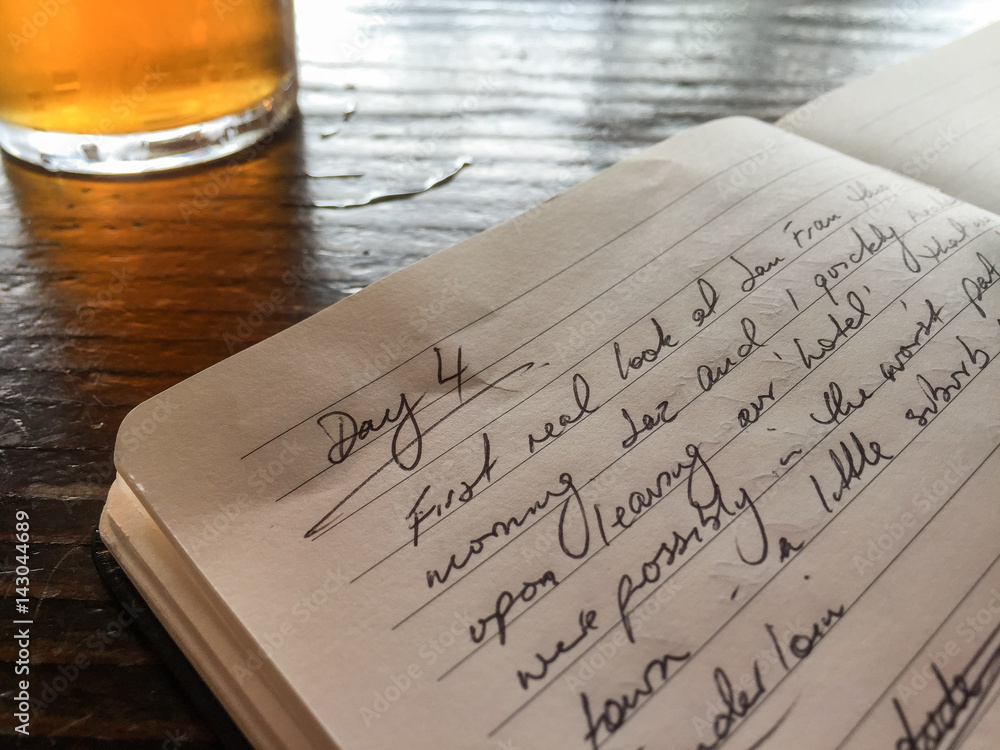 Day 4
First real look at San Fran this
morning Jaz and I quickly
upon leaving our 'hotel' that we
were possibly in the worst part
town in a little suburb
Adobe Stock | #143044689